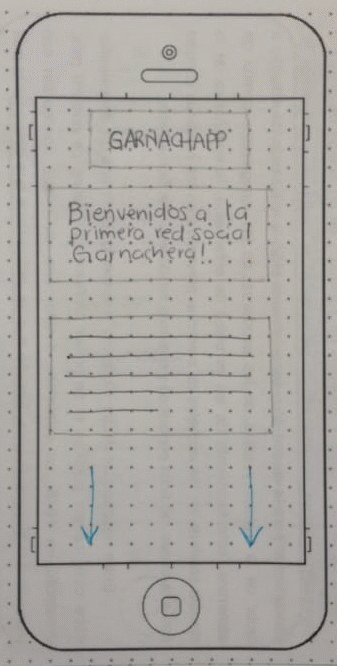 GARNACHAPP
Bienvenidos a la
primera red social
Garnachera!